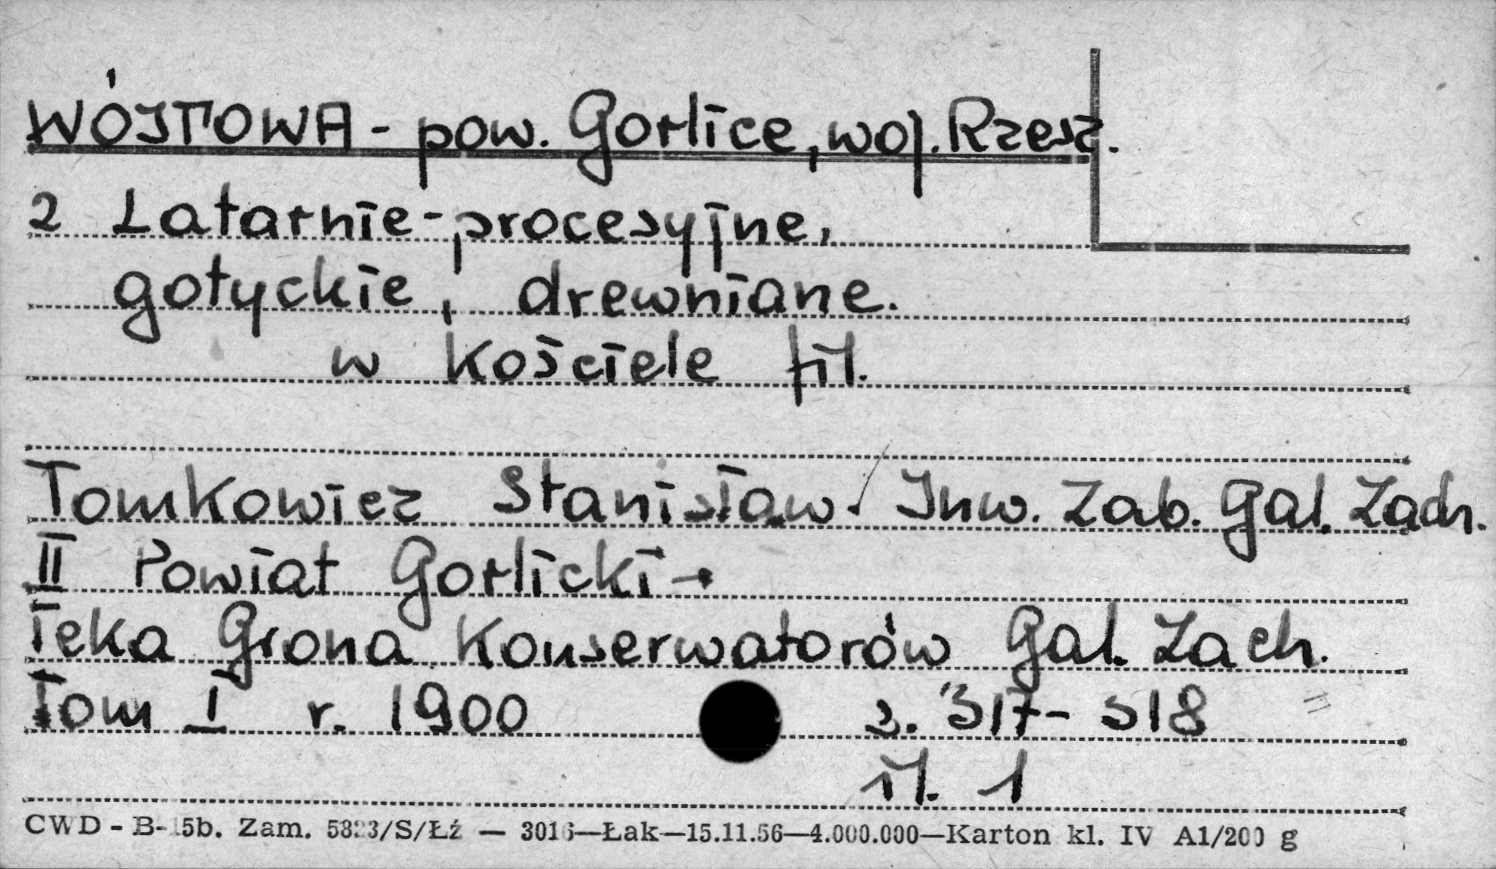 WÓJTOWA - pow. Gorlice, woj. Rzesz.
2 Latarnie-procesyjne,
gotyckie, drewniane.
w kościele fil.
Tomkowicz Stanisław / Inw. Zab. Gal. Zach.
II Powiat Gorlicki -
Teka Grona Konserwatorów Gal. Zach.
Tom I r. 1900 s. 317-318
il. 1
CWD - B- 5b. Zam. 5823/S/Łź — 3016—Łak—15.11.56—4.000.000—Karton kl. IV A1/200 g